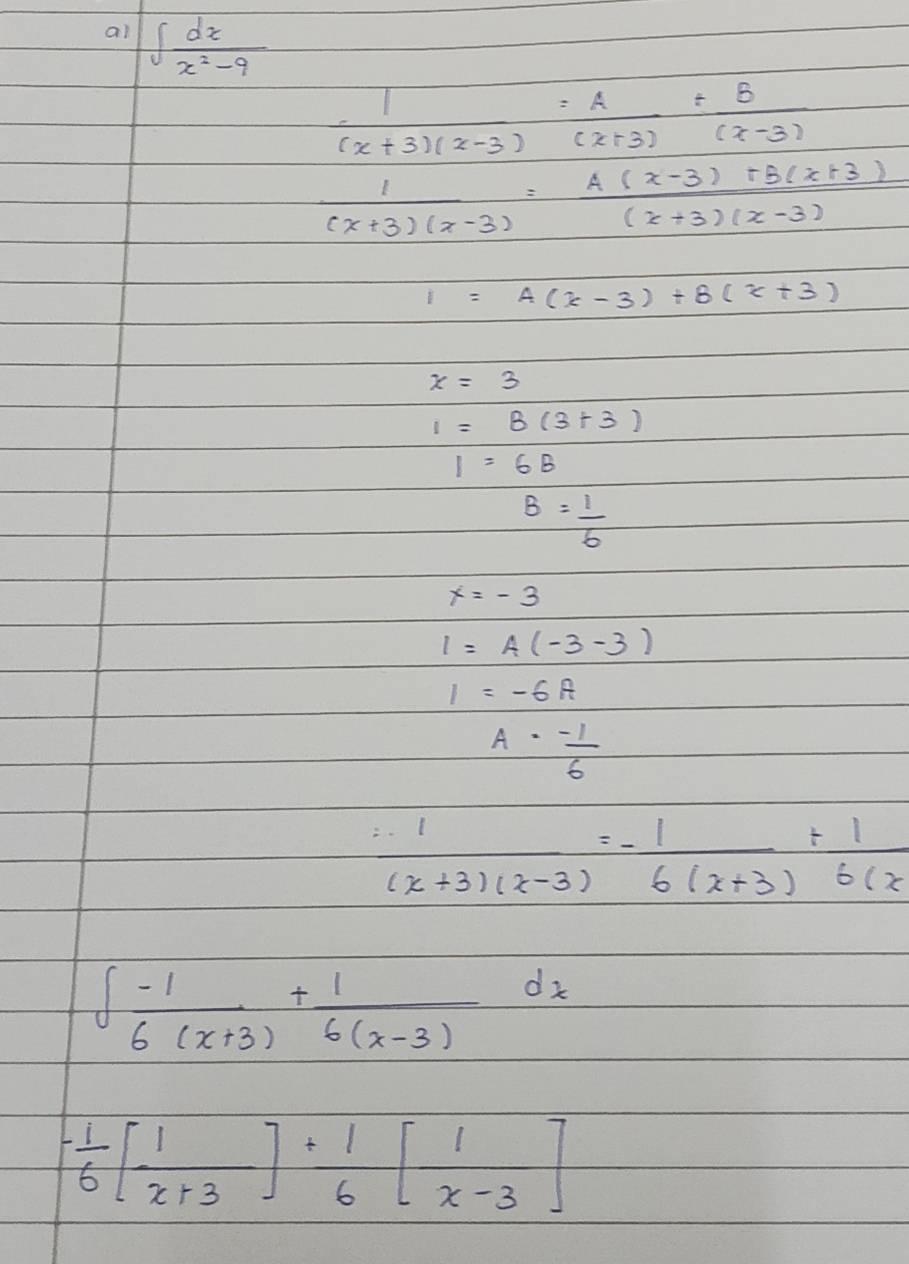 a) ∫ dx / x² - 9
1 / (x+3)(x-3) = A / (x+3) + B / (x-3)
1 / (x+3)(x-3) = A(x-3) + B(x+3) / (x+3)(x-3)
1 = A(x-3) + B(x+3)
x = 3
1 = B(3+3)
1 = 6B
B = 1/6
x = -3
1 = A(-3-3)
1 = -6A
A = -1/6
∴ 1 / (x+3)(x-3) = -1 / 6(x+3) + 1 / 6(x
∫ -1 / 6(x+3) + 1 / 6(x-3) dx
-1/6 [1 / x+3] + 1/6 [1 / x-3]